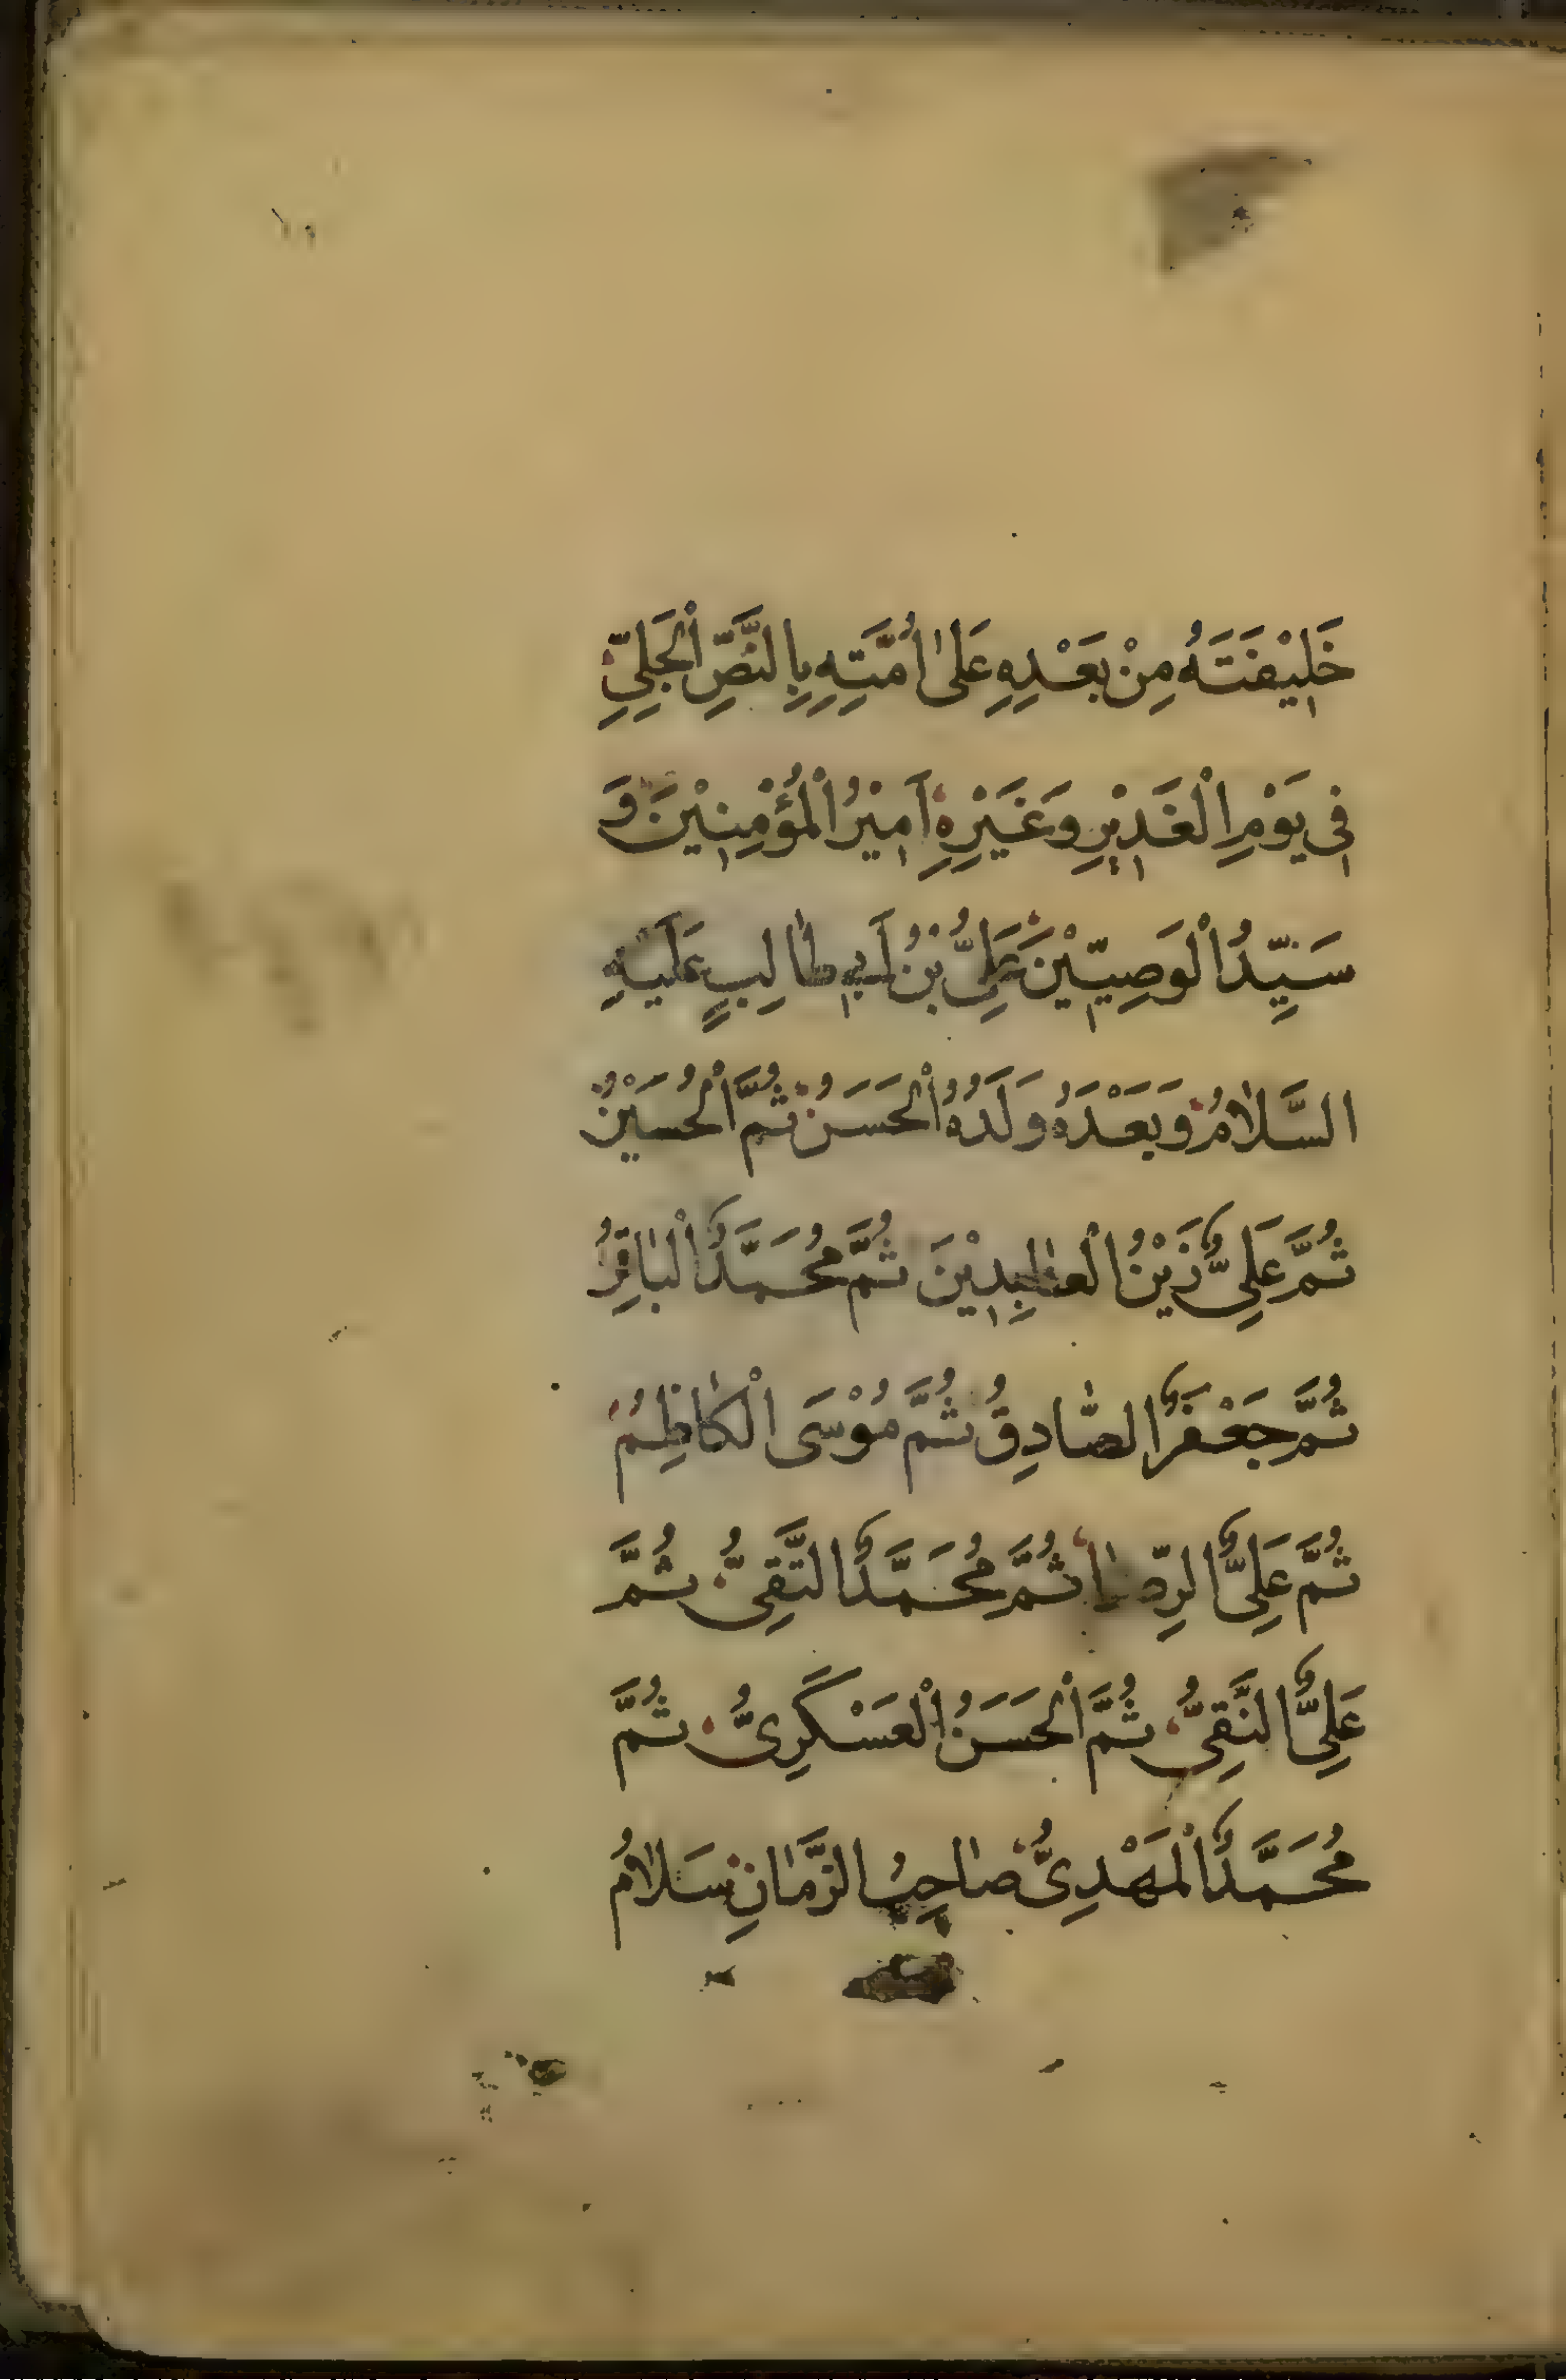 خَلِيْفَتَهُ مِنْ بَعْدِهِ عَلىٰ اُمَّتِهِ بِالنَّصِّ الْجَلِيِّ
فِى يَوْمِ الْغَدِيْرِ وَغَيْرِهِ اَمِيْرُ الْمُؤْمِنِيْنَ وَ
سَيِّدُ الْوَصِيّيْنَ عَلِىُّ بْنُ اَبِي طٰالِبٍ عَلَيْهِ
السَّلٰامُ وَبَعْدَهُ وَلَدُهُ الْحَسَنُ ثُمَّ الْحُسَيْنُ
ثُمَّ عَلِىٌّ زَيْنُ الْعٰابِدِيْنَ ثُمَّ مُحَمَّدٌ الْبٰاقِرُ
ثُمَّ جَعْفَرٌ الصّٰادِقُ ثُمَّ مُوْسَى الْكٰاظِمُ
ثُمَّ عَلِىٌّ الرِّضٰا ثُمَّ مُحَمَّدٌ التَّقِىُّ ثُمَّ
عَلِىٌّ النَّقِىُّ ثُمَّ الْحَسَنُ الْعَسْكَرِىُّ ثُمَّ
مُحَمَّدٌ الْمَهْدِىُّ صٰاحِبُ الزَّمٰانِ سَلٰامُ